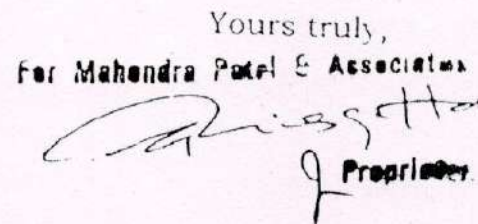 Yours truly,
For Mahendra Patel & Associates
Proprietor.